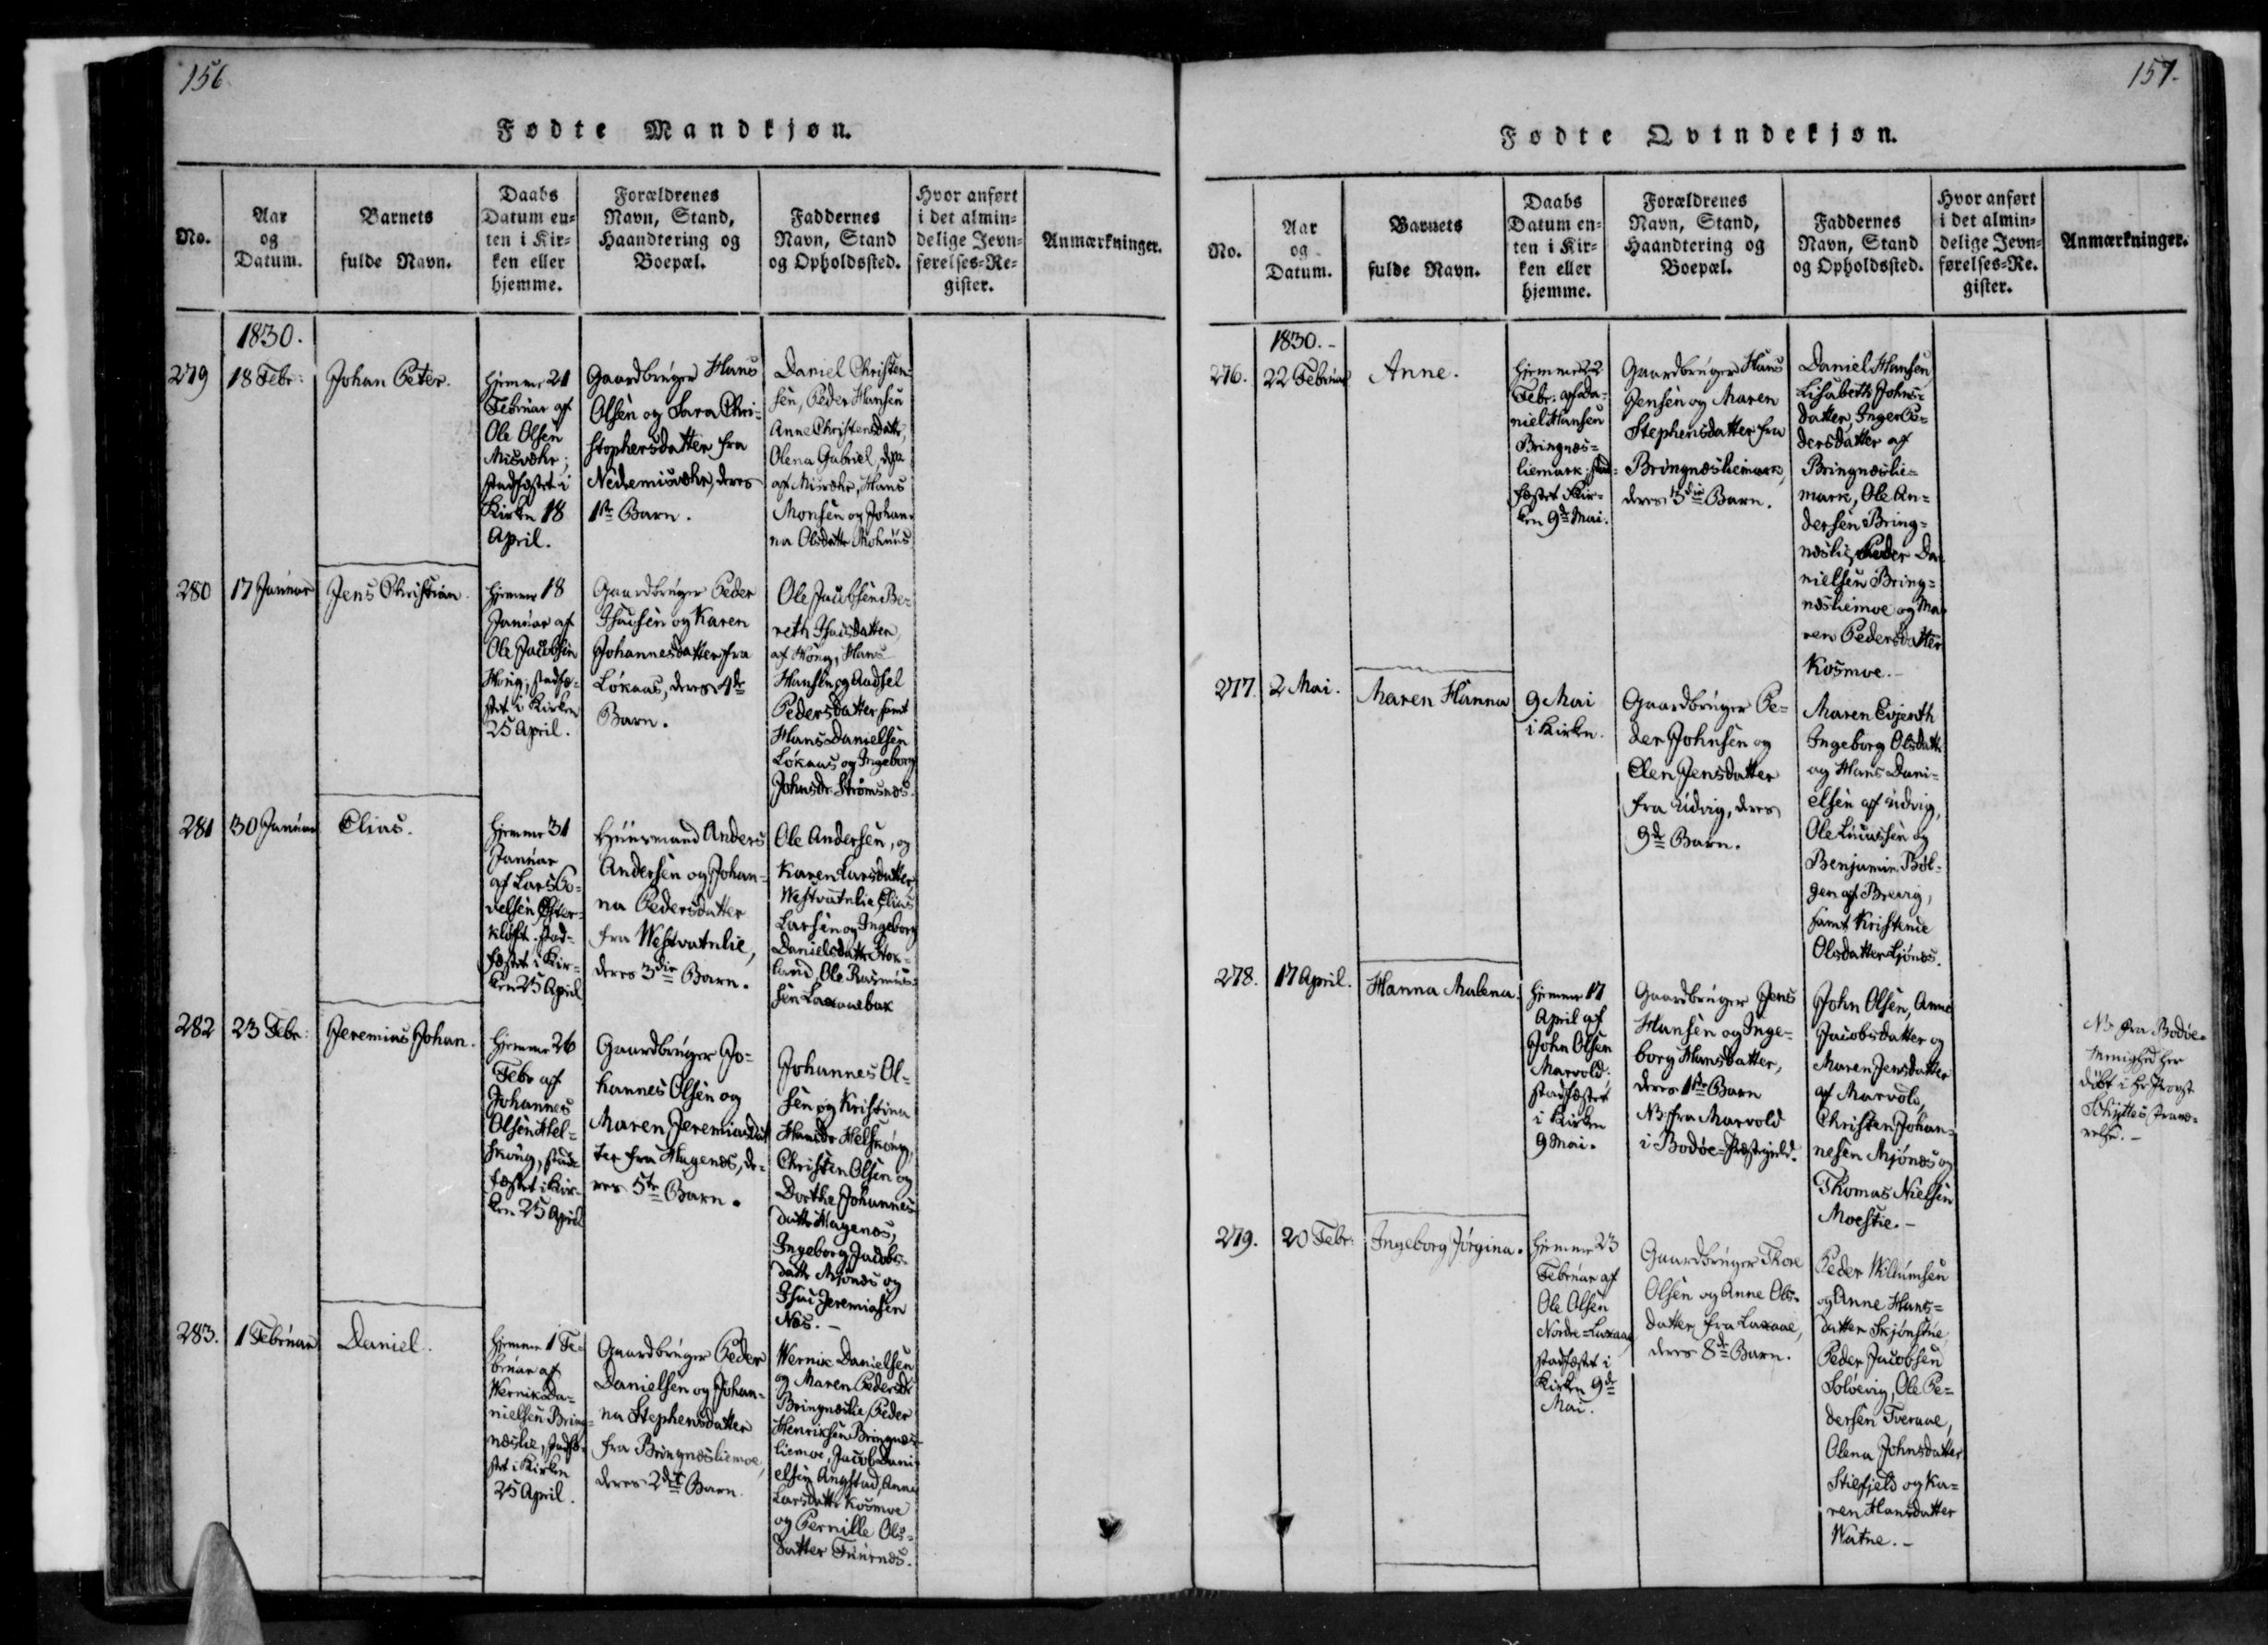 156
Fødte Mandkjøn.
No.
Aar
og
Datum.
Barnets
fulde Navn.
Daabs
Datum en=
ten i Kir=
ken eller
hjemme.
Forældrenes
Navn, Stand,
Haandtering og
Boepæl.
Faddernes
Navn, Stand
og Opholdssted.
Hvor anført
i det almin=
delige Jevn=
førelses=Re=
gister.
Anmærkninger.
1830.
279
18 Febr:
Johan Peter.
hjemme 21
Februar af
Ole Olsen
Misvæhr;
stadfæstet i
Kirken 18
April.
Gaardbruger Hans
Olsen og Sara Chri=
stophersdatter fra
Nedremisvæhr, deres
1ste Barn.
Daniel Christen=
sen, Peder Hansen
Anne Christensdatter,
Olena Gabriel,
af Misvæhr, Hans
Monsen og Johan=
na Olsdatter
280
17 Januar
Jens Christian.
hjemme 18
Januar af
Ole Jacobsen
Houg; stadfæ=
stet i Kirken
25 April.
Gaardbruger Peder
Isacsen og Karen
Johannesdatter fra
Løkaas, deres 4de
Barn.
Ole Jacobsen Be=
reth Isacsdatter
af Houg, Hans
Hansen og Aadsel
Pedersdatter samt
Hans Danielsen
Løkaas og Ingeborg
Johnsdr. Strømsnæs.
281
30 Januar
Elias.
hjemme 31
Januar
af Lars Po=
velsen Øster=
kløft. stad=
fæstet i Kir=
ken 25 April
Huusmand Anders
Andersen og Johan=
na Pedersdatter
fra Westvatnlie,
deres 3die Barn.
Ole Andersen, og
Karen Larsdatter
Westvatnlie, Elias
Larsen og Ingeborg
Danielsdatter Stor=
land, Ole Rasmus=
sen Laxaaebak
282
23 Febr:
Jeremias Johan.
hjemme 26
Febr af
Johannes
Olsen Hel=
skoug, stad=
fæstet i Kir=
ken 25 April
Gaardbruger Jo=
hannes Olsen og
Maren Jeremiasdat
ter fra Hagenæs, de=
res 5te Barn.
Johannes Ol=
sen og Kristina
Hansdr Helskoug,
Christen Olsen og
Dorthe Johannes
datter Hagenæs,
Ingeborg Jacobs=
datter Mjønæs og
Isac Jeremiasen
Næs.-
283.
1 Februar
Daniel.
hjemme 1 Fe=
bruar af
Wernik Da=
nielsen Bring=
næslie, stadfæ=
stet i Kirken
25 April.
Gaardbruger Peder
Danielsen og Johan=
na Stephensdatter
fra Bringnæsliemoe,
deres 2det Barn.
Wernik Danielsen
og Maren Pedersdr
Bringnæslie, Peder
Henriksen Bringnæs=
liemoe, Jacob Dani=
elsen Angstad, Anne
Larsdatter Kosmoe
og Pernille Ols=
datter Tuurnæs.
157.
Fødte Qvindekjøn.
No.
Aar
og
Datum.
Barnets
fulde Navn.
Daabs
Datum en=
ten i Kir=
ken eller
hjemme.
Forældrenes
Navn, Stand,
Haandtering og
Boepæl.
Faddernes
Navn, Stand
og Opholdssted.
Hvor anført
i det almin=
delige Jevn=
førelses=Re.
gister.
Anmærkninger.
1830.-
276.
22 Februar
Anne.
hjemme 22
Febr. af Da=
niel Hansen
Bringnæs=
liemark; stad=
fæstet i Kir=
ken 9de Mai.
Gaardbruger Hans
Jensen og Maren
Stephensdatter fra
Bringnæsliemark,
deres 3die Barn.
Daniel Hansen
Lisabeth Johns=
datter, Inger Pe=
dersdatter af
Bringnæslie=
mark, Ole An=
dersen Bring=
næslie, Peder Da=
nielsen Bring=
næsliemoe og Ma=
ren Pedersdatter
Kosmoe.-
277.
2 Mai.
Maren Hanna
9 Mai
i Kirken.
Gaardbruger Pe=
der Johnsen og
Elen Jensdatter
fra Udvig, deres
9de Barn.
Maren Evjenth
Ingeborg Olsdatter
og Hans Dani=
elsen af Udvig,
Ole Lucassen og
Benjamin Bøl=
gen af Brevig,
samt Kristine
Olsdatter Ljønæs.
278.
17 April.
Hanna Malena.
hjemme 17
April af
John Olsen
Marvold.
stadfæstet
i Kirken
9 Mai.
Gaardbruger Jens
Hansen og Inge=
borg Hansdatter,
deres 1ste Barn
NB fra Marvold
i Bodøe=Præstegjeld.
John Olsen, Anne
Jacobsdatter og
Maren Jensdatter
af Marvold,
Christen Johan=
nesen Mjønæs og
Thomas Nielsen
Moestie.-
NB fra Bodøe=
Menighed her
døbt i Hr Provst
Schyttes fravæ=
relse.-
279.
20 Febr:
Ingeborg Jørgina.
hjemme 23
Februar af
Ole Olsen
Nordre=Laxaae
stadfæstet i
Kirken 9de
Mai.
Gaardbruger Thore
Olsen og Anne Ols=
datter fra Laxaae,
deres 8de Barn.
Peder Willumsen
og Anne Hans=
datter Skjønstue,
Peder Jacobsen
Soløevig, Ole Pe=
dersen Tveraae,
Olena Johnsdatter
Stiefjeld og Ka=
ren Hansdatter
Watne.-